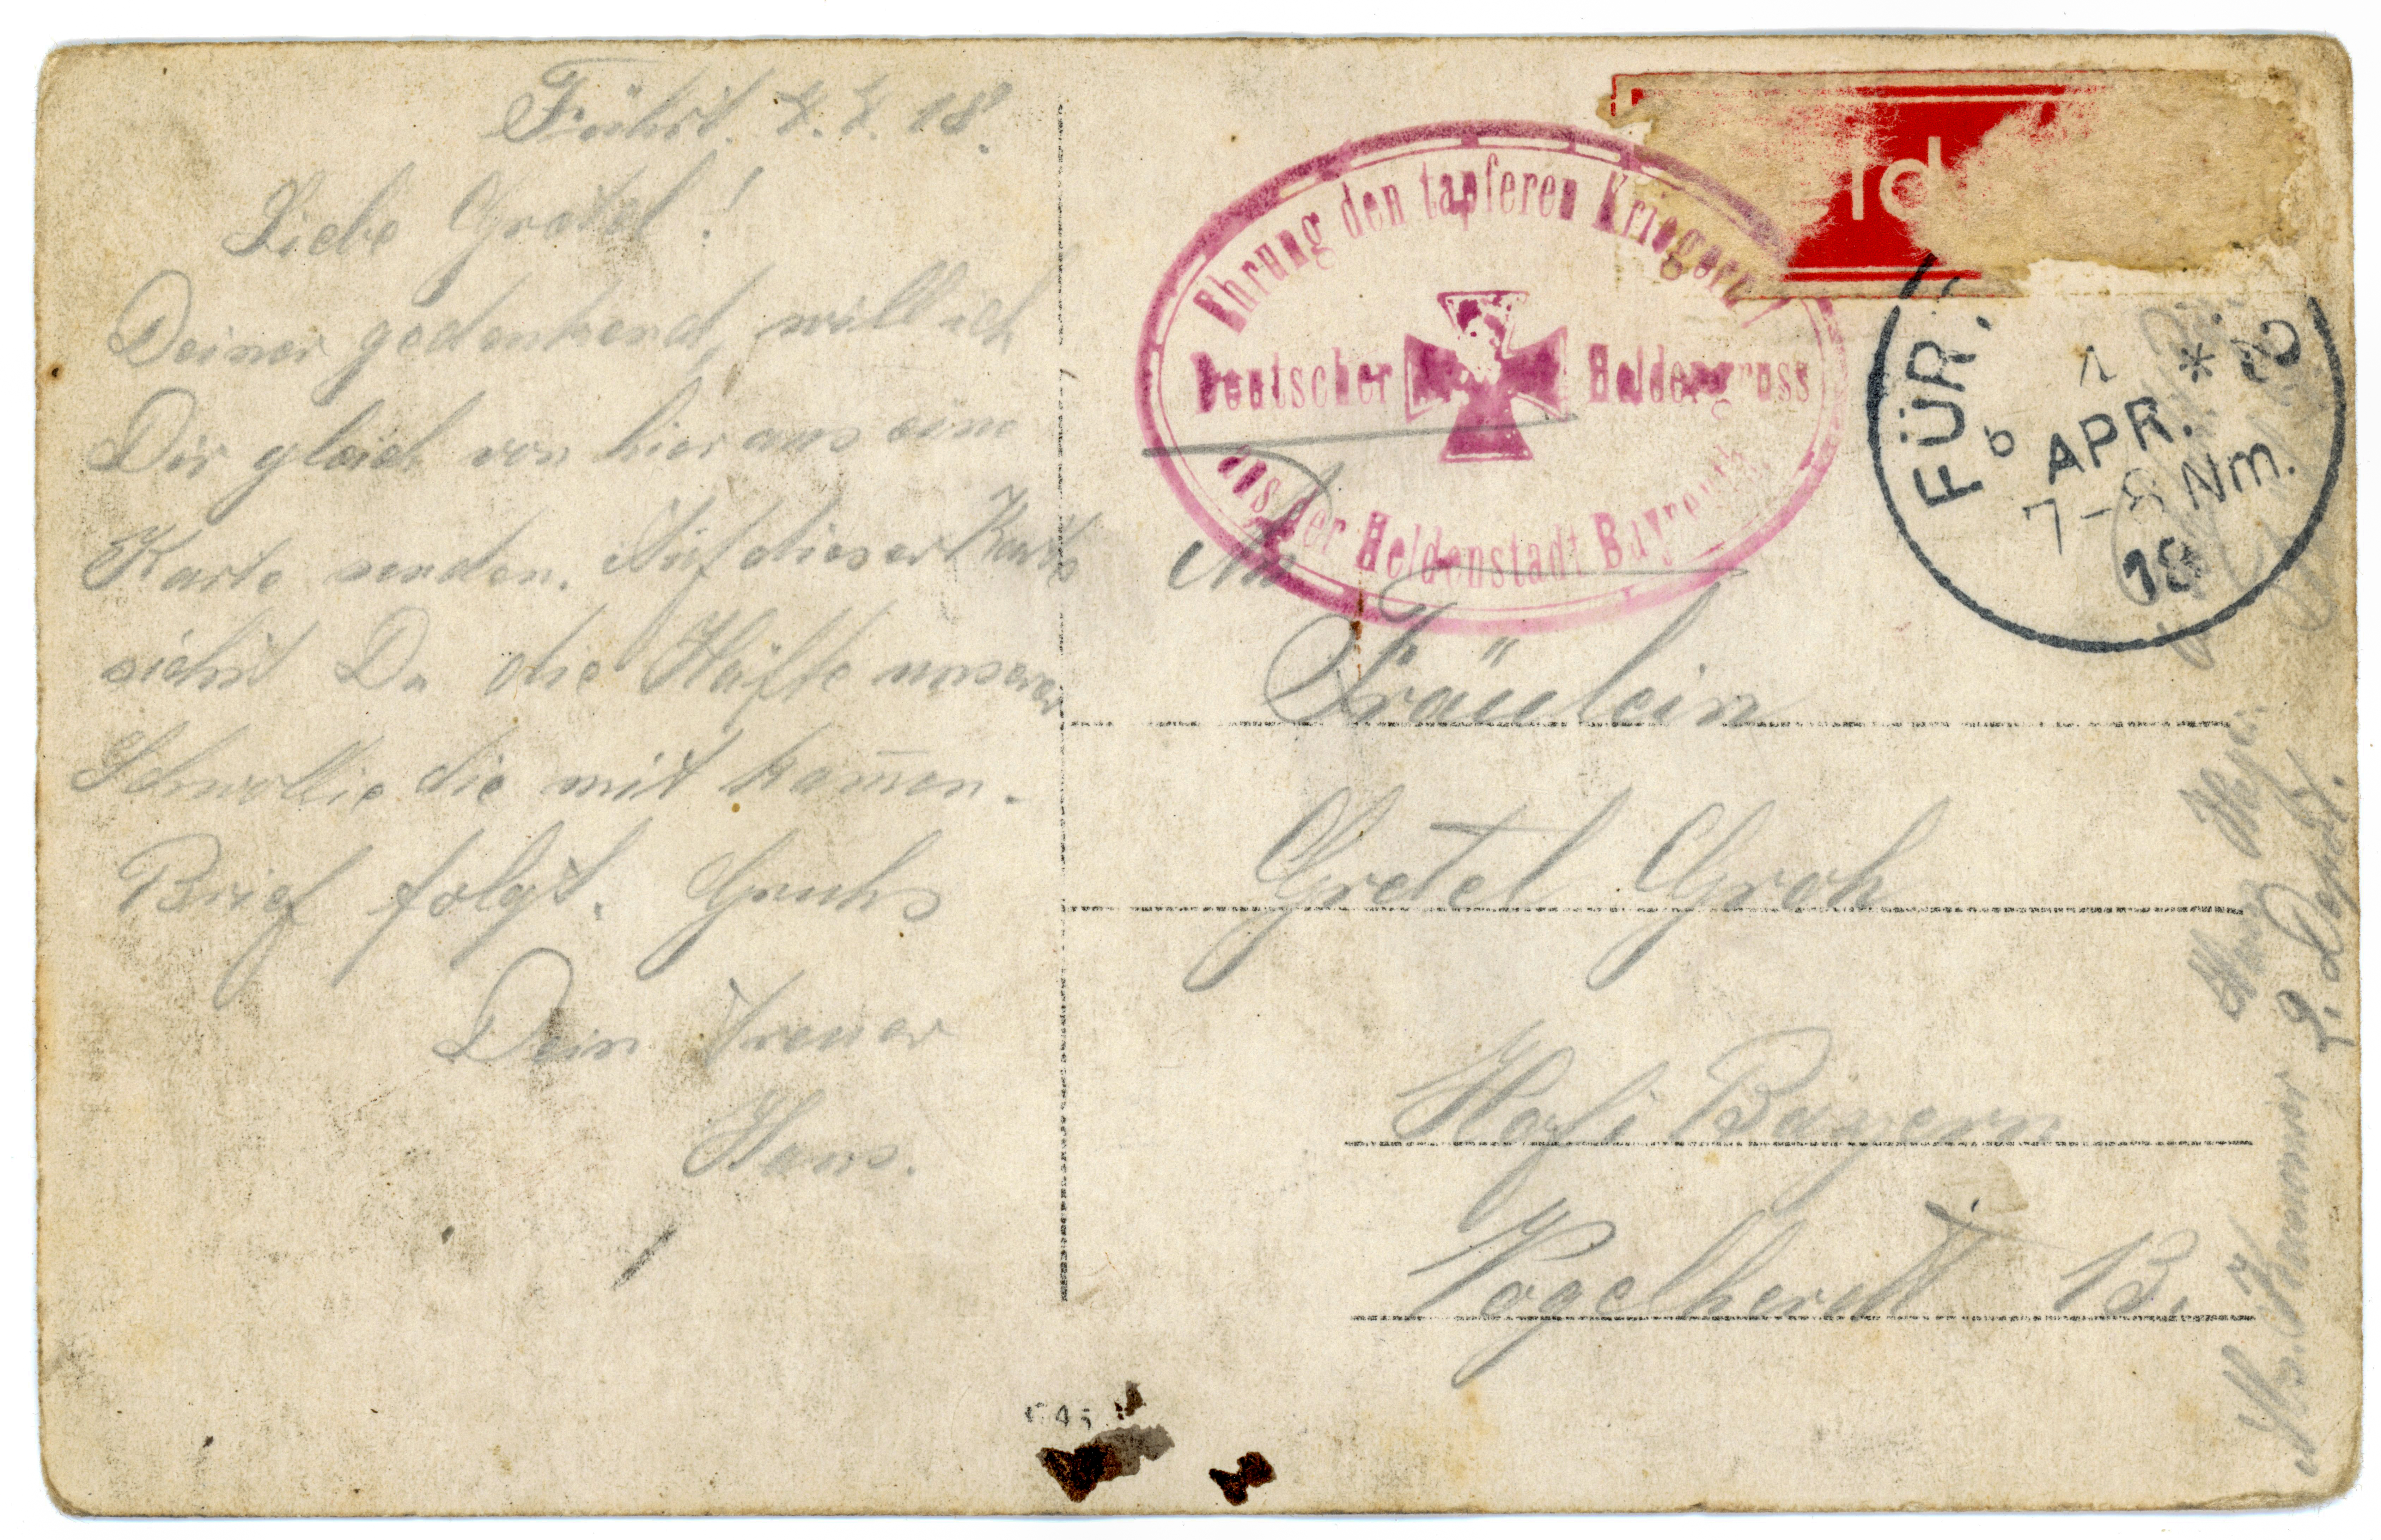 Führt. 4. 4. 18.
Liebe Gretel!
Deiner gedenkend, will ich
Dir gleich von hier aus eine
Karte senden. Auf dieser Karte
siehst Du die Hälfte unserer
die mit kam̄en.
Brief folgt. Gruhs
Dein treuer
Hans.
Ehrung den tapferen Kriegern!
Deutscher Heldengruss
aus der Heldenstadt Bayreuth
ld
FÜR
1 * 
b APR.
7-8 Nm.
18
An
Fräulein
Gretel Groh
Hof i Bayern
Vogelherdt 13.
Abs.
Hans
2. Dept.